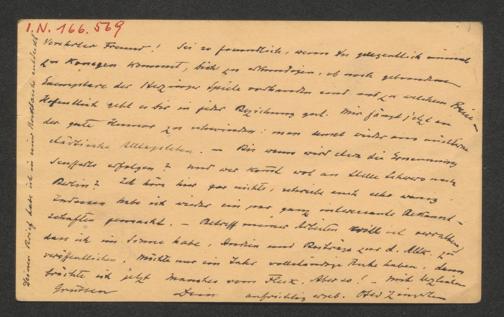 I.N. 166.569
Verehrter Freund! Sei so freundlich, wenn Du gelegentlich einmal
zu Konegen kommst, Dich zu erkundigen, ob noch gebundene
Exemplare der Sterzinger Spiele vorhanden sind und zu welchem Preise –
Hoffentlich geht es Dir in jeder Beziehung gut. Mir fängt jetzt an
der gute Humor zu schwinden: man
städtische Alltagsleben. – Bis wann wird etwa die Ernennung
Seufferts erfolgen? Und wer kommt wol an Stelle Scherers nach
Berlin? Ich höre hier gar nichts, schreibe auch sehr wenig.
Indessen habe ich wieder ein par ganz interessante Bekannt-
schaften gemacht. – Betreff meiner Arbeiten will ich
dass ich im Sinne habe, Studien und Beiträge zur d. Myth. zu
veröffentlichen, möchte nur ein Jahr vollständige Ruhe haben, dann
brächte ich jetzt Manches vom Fleck. Aber so! – Mit herzlichen
Grüssen Dein aufrichtig erg. Oswald Zingerle
Deinen Brief habe ich in